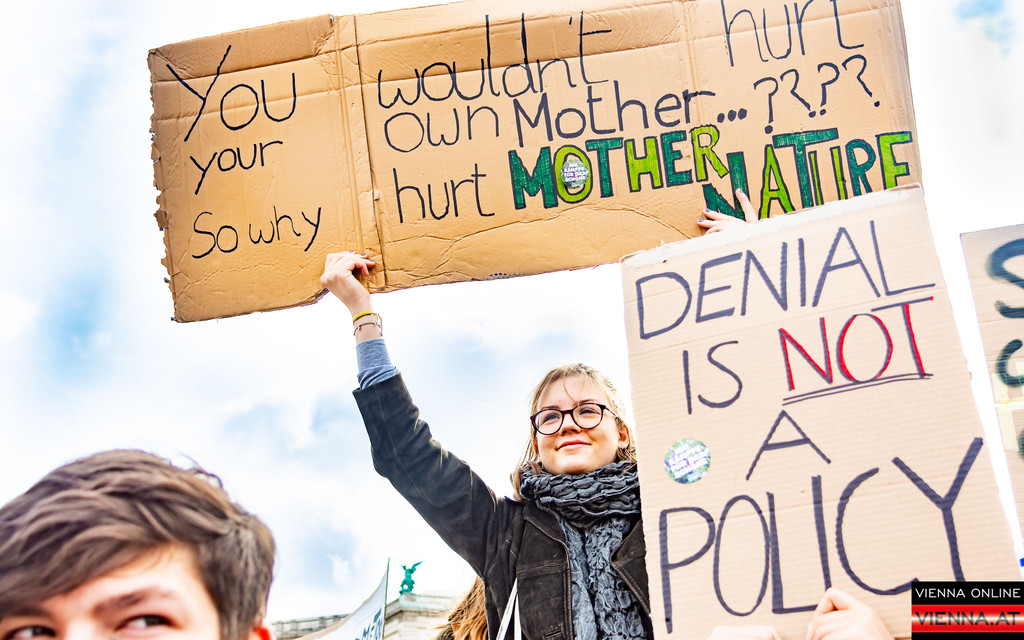 You wouldn't hurt
your own Mother...????
So why hurt MOTHER
NATURE
DENIAL
IS NOT
A
POLICY
VIENNA ONLINE
VIENNA.AT